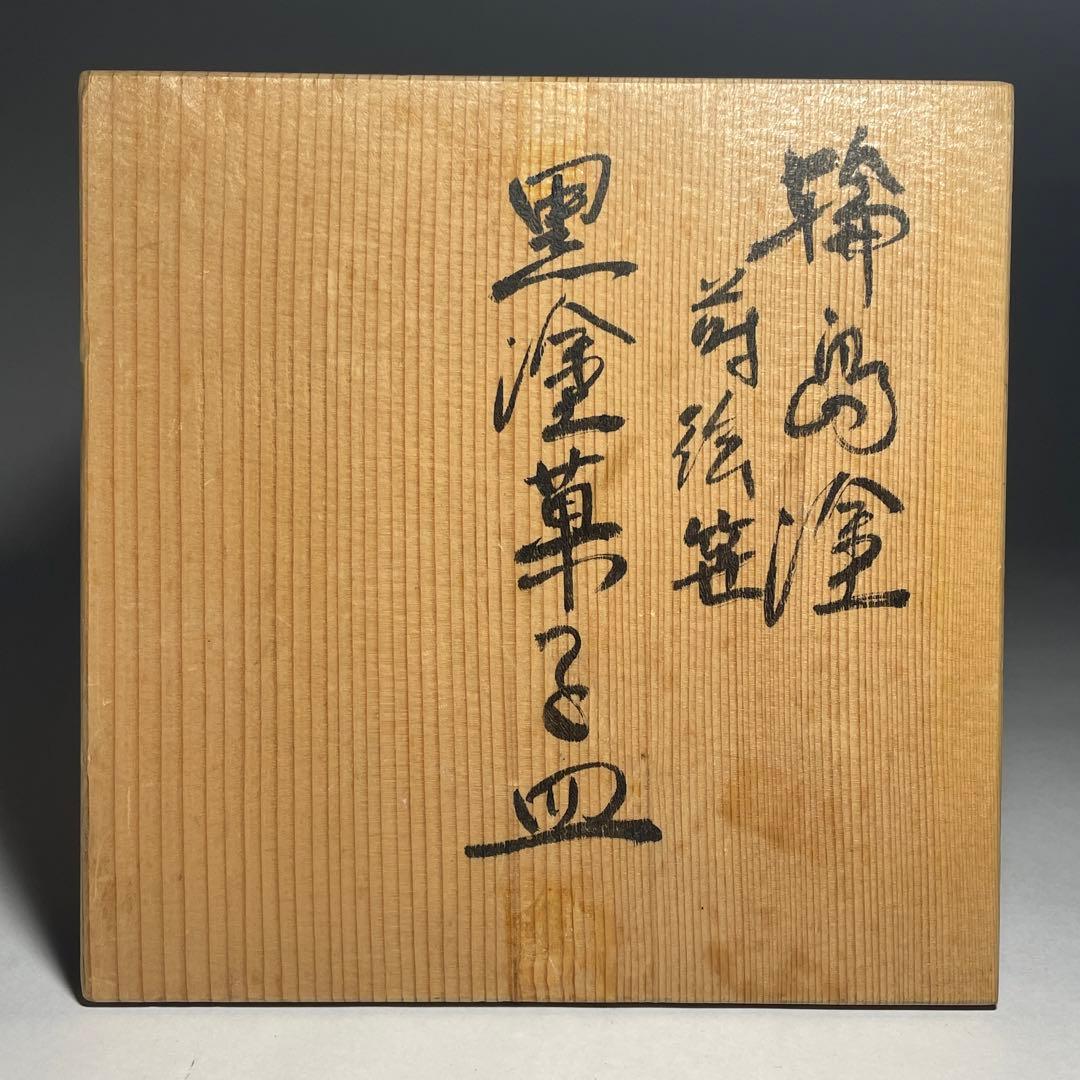 輪島塗
蒔絵笹
黒塗菓子皿